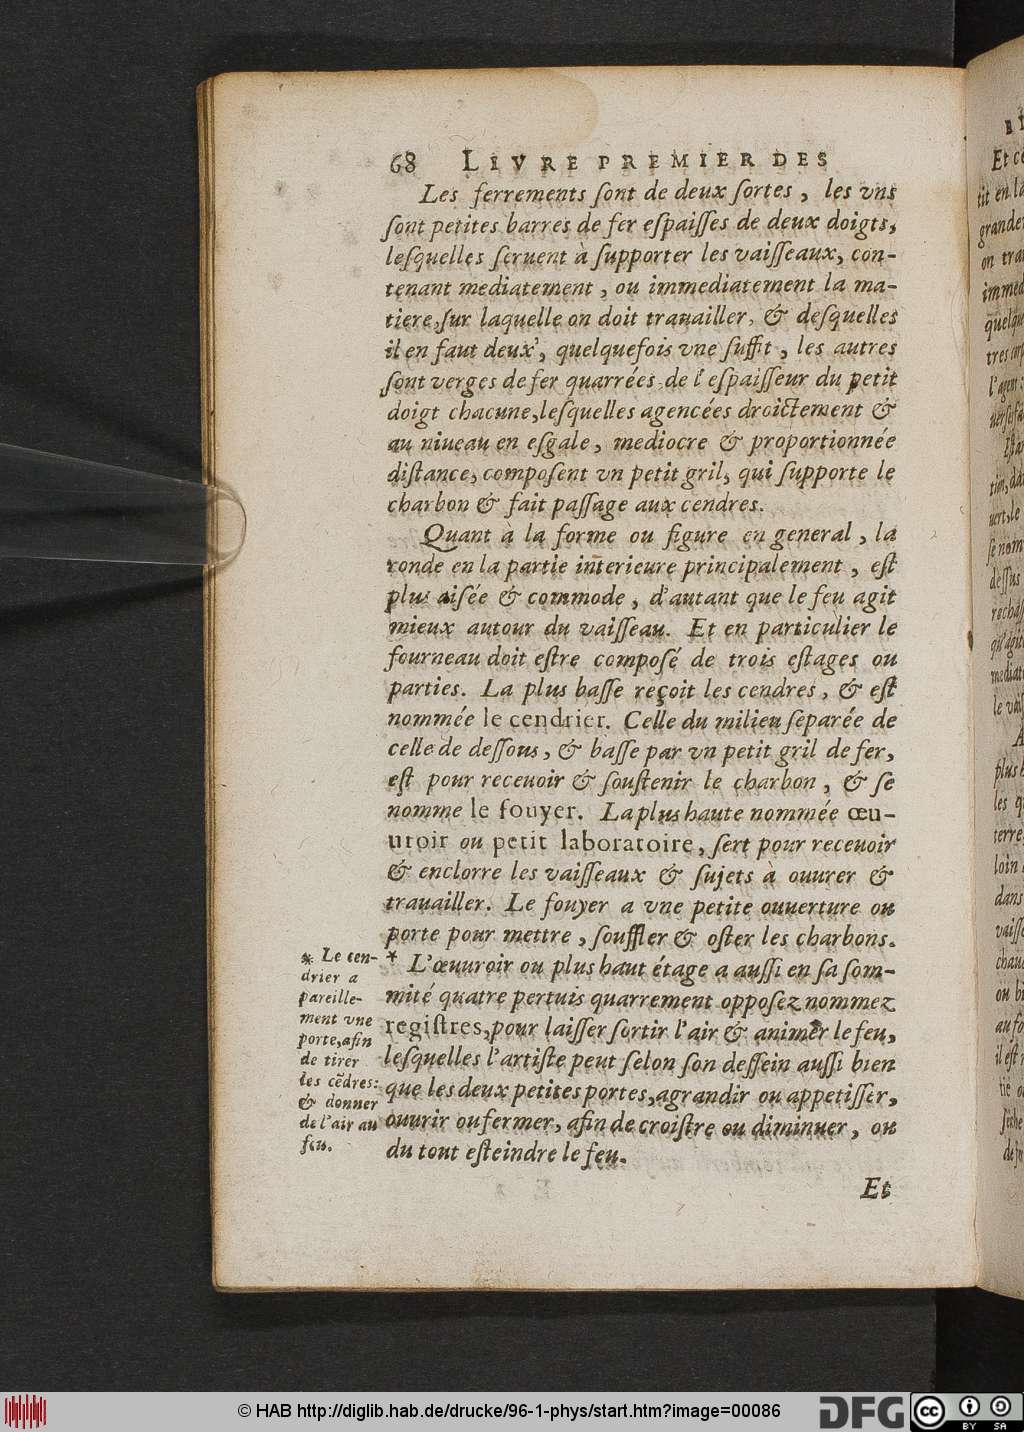 68 LIVRE PREMIER DES
Les ferrements ſont de deux ſortes, les vns
ſont petites barres de fer eſpaiſſes de deux doigts,
leſquelles ſeruent à ſupporter les vaiſſeaux, con-
tenant mediatement, ou immediatement la ma-
tiere, ſur laquelle on doit trauailler, & deſquelles
il en faut deux, quelquefois vne ſuffit, les autres
ſont verges de fer quarrées de l'eſpaiſſeur du petit
doigt chacune, leſquelles agencées droictement &
au niueau en eſgale, mediocre & proportionnée
diſtance, compoſent vn petit gril, qui ſupporte le
charbon & fait paſſage aux cendres.
Quant à la forme ou figure en general, la
ronde en la partie interieure principalement, eſt
plus aiſée & commode, d'autant que le feu agit
mieux autour du vaiſſeau. Et en particulier le
fourneau doit eſtre compoſé de trois eſtages ou
parties. La plus baſſe reçoit les cendres, & eſt
nommée le cendrier. Celle du milieu ſeparée de
celle de deſſous, & baſſe par vn petit gril de fer,
eſt pour receuoir & ſouſtenir le charbon, & ſe
nomme le fouyer. La plus haute nommée œu-
uroir ou petit laboratoire, ſert pour receuoir
& enclorre les vaiſſeaux & ſujets à ouurer &
trauailler. Le fouyer a vne petite ouuerture ou
porte pour mettre, ſouffler & oſter les charbons.
* L'œuuroir ou plus haut étage a auſſi en ſa ſom-
mité quatre pertuis quarrement oppoſez nommez
regiſtres, pour laiſſer ſortir l'air & animer le feu,
leſquelles l'artiſte peut ſelon ſon deſſein auſſi bien
que les deux petites portes, agrandir ou appetiſſer,
ouurir ou fermer, afin de croiſtre ou diminuer, ou
du tout eſteindre le feu.
Et
* Le cen-
drier a
pareille-
ment vne
porte, afin
de tirer
les cẽdres:
& donner
de l'air au
feu.
© HAB http://diglib.hab.de/drucke/96-1-phys/start.htm?image=00086
DFG
cc
BY SA